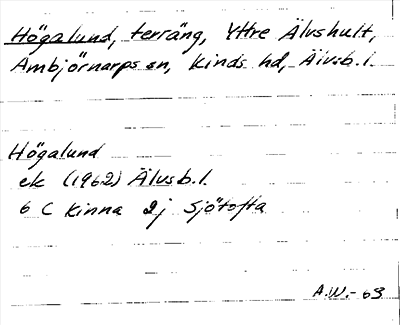 Högalund, terräng, Yttre Älvshult,
Ambjörnarps sn, Kinds hd, Älvsb.l.
Högalund
ek (1962) Älvsb.l.
6 C Kinna 2j Sjötofta
A.W.-63